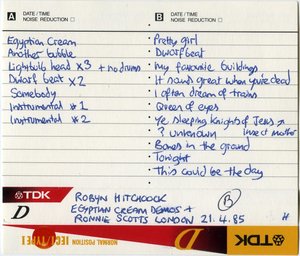 A DATE / TIME
NOISE REDUCTION
Egyptian Cream
Another bubble
Lightbulb head x3 + no drums
Dwarf beat x2
Somebody
Instrumental #1
Instrumental #2
B DATE / TIME
NOISE REDUCTION
Pretty girl
Dwarfbeat
My favourite buildings
It sounds great when you're dead
I often dream of trains
Queen of eyes
Ye Sleeping Knights of Jesus
? unknown insect mother
Bones in the ground
Tonight
This could be the day
TDK
D
NORMAL POSITION IEC I / TYPE I
D
TDK
ROBYN HITCHCOCK
EGYPTIAN CREAM DEMOS +
RONNIE SCOTTS LONDON 21.4.85
B